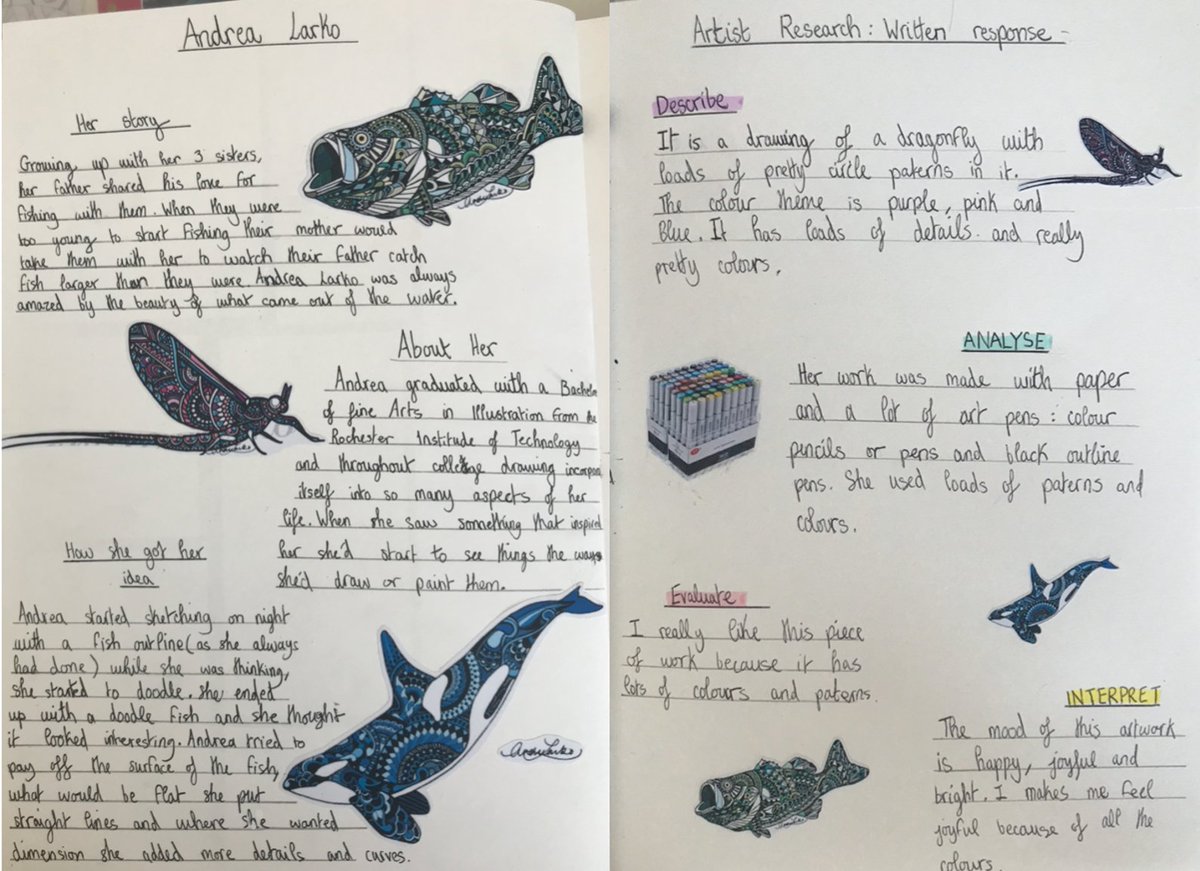 Andrea Larko
Her story
Growing up with her 3 sisters,
her father shared his love for
fishing with them. When they were
too young to start fishing their mother would
take them with her to watch their father catch
fish larger than they were. Andrea Larko was always
amazed by the beauty of what came out of the water.
About Her
Andrea graduated with a Bachelor
of fine Arts in Illustration from the
Rochester Institute of Technology
and throughout college drawing incorpora
itself into so many aspects of her
life. When she saw something that inspired
her she'd start to see things the ways
she'd draw or paint them.
How she got her
idea
Andrea started sketching on night
with a fish outline (as she always
had done) while she was thinking,
she started to doodle. she ended
up with a doodle fish and she thought
it looked interesting. Andrea tried to
pay off the surface of the fish,
what would be flat she put
straight lines and where she wanted
dimension she added more details and curves.
Andrea Larko
Artist Research: Written response -
Describe
It is a drawing of a dragonfly with
loads of pretty circle paterns in it.
The colour theme is purple, pink and
Blue. It has loads of details. and really
pretty colours.
ANALYSE
Her work was made with paper
and a lot of art pens: colour
pencils or pens and black outline
pens. She used loads of paterns and
colours.
Evaluate
I really like this piece
of work because it has
lots of colours and paterns.
INTERPRET
The mood of this artwork
is happy, joyful and
bright. I makes me feel
joyful because of all the
colours.